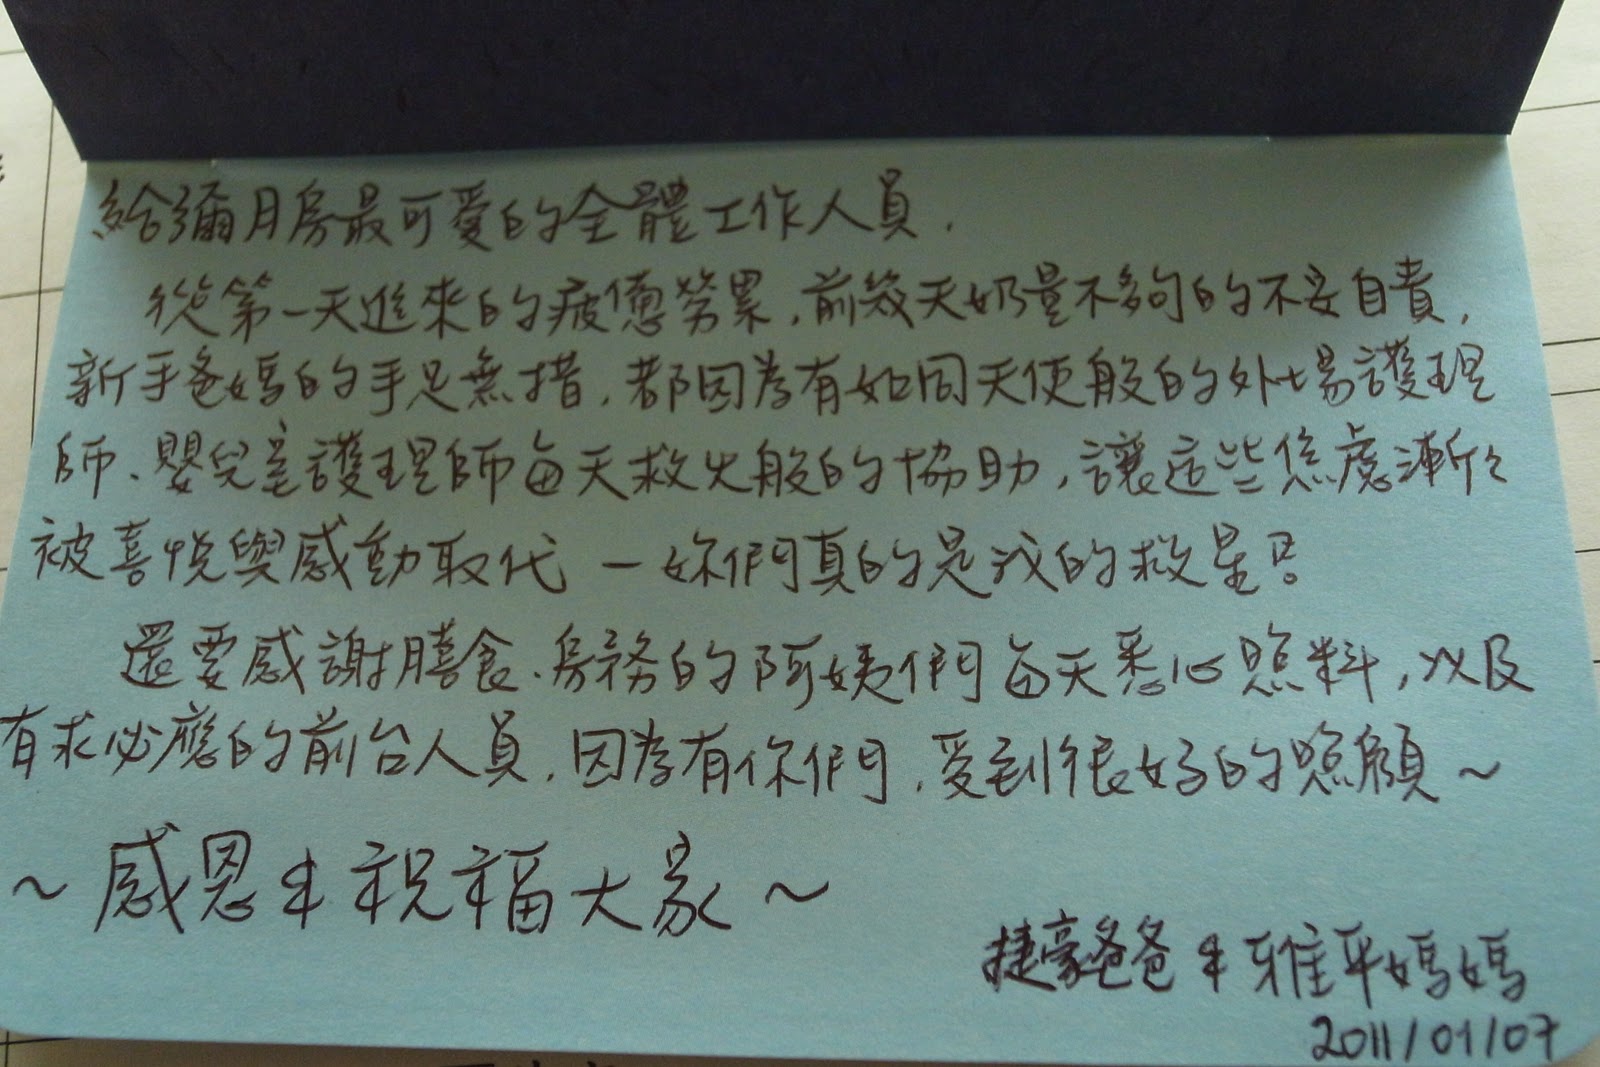 給彌月房最可愛的全體工作人員.
從第一天進來的疲憊勞累,前幾天奶量不夠的不安自責,
新手爸媽的手足無措,都因為有如同天使般的外場護理
師、嬰兒室護理師每天救火般的協助,讓這些焦慮漸々
被喜悅與感動取代 — 妳們真的是我的救星!
還要感謝膳食、房務的阿姨們每天悉心照料,以及
有求必應的前台人員,因為有你們,受到很好的照顧~
~感恩&祝福大家~
捷豪爸爸&雅平媽媽
2011/01/07